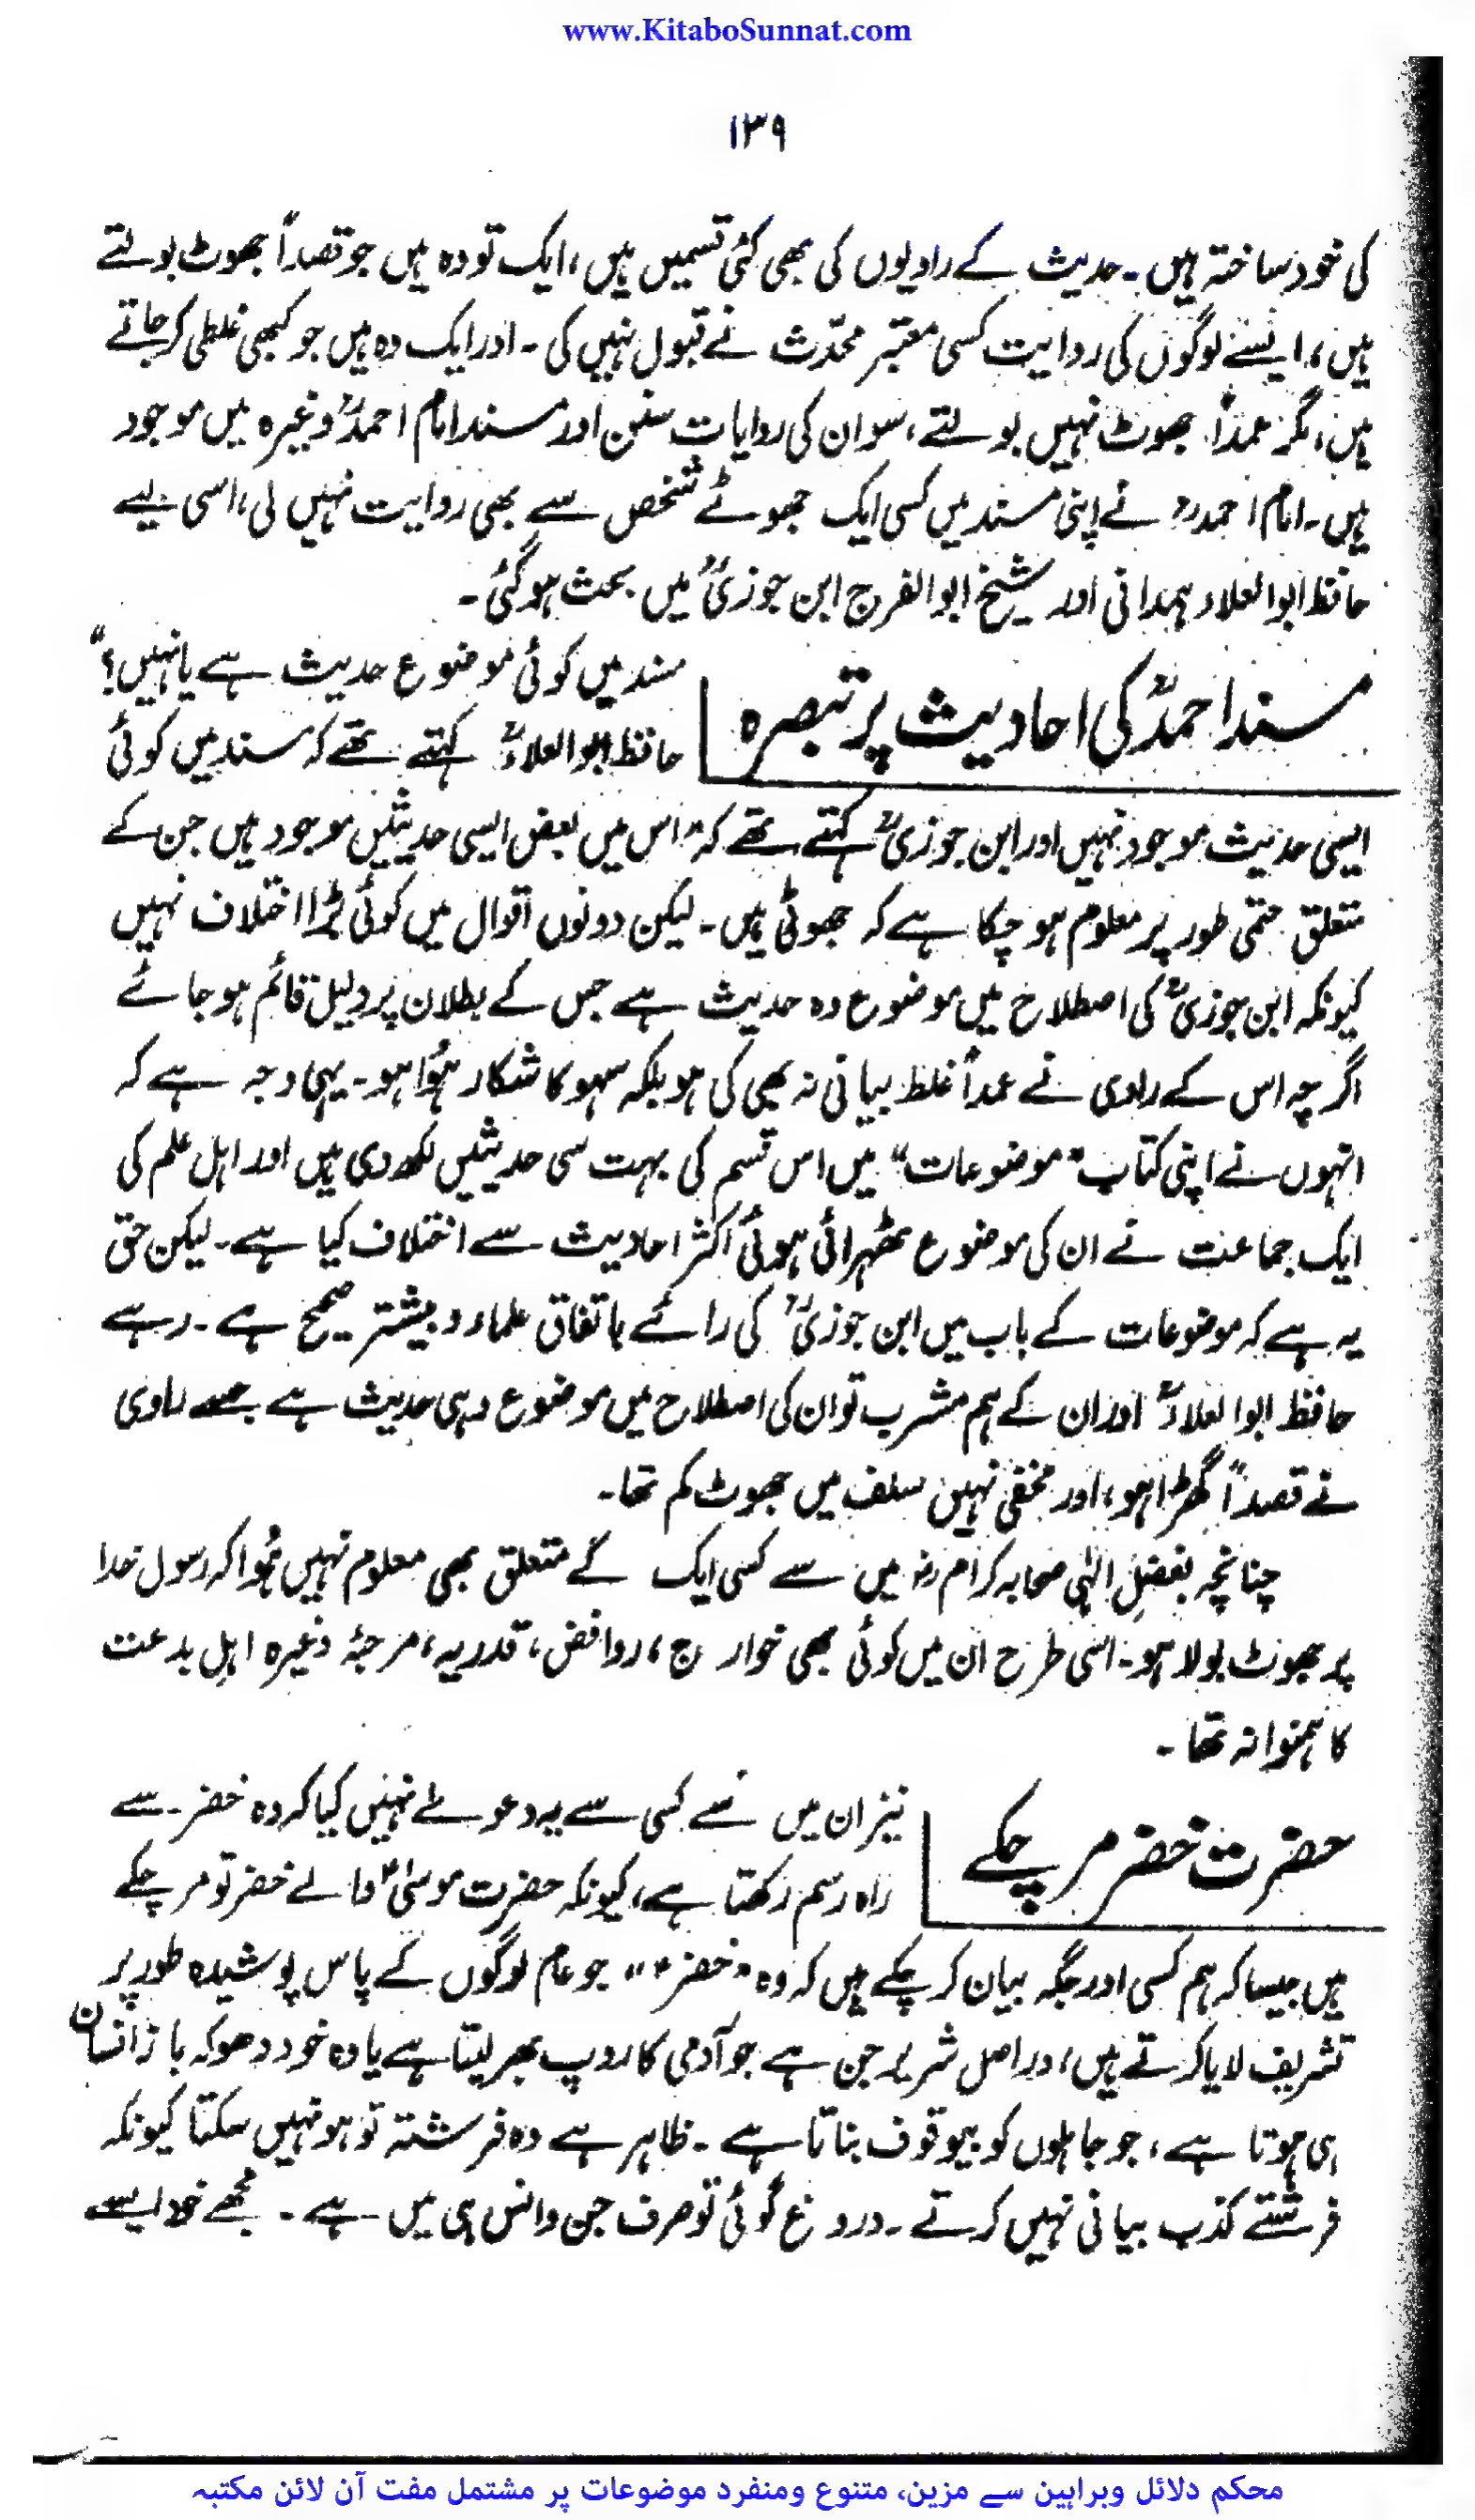 www.KitaboSunnat.com
۱۳۹
کی خود ساختہ ہیں۔ حدیث کے راویوں کی بھی کئی قسمیں ہیں، ایک تو وہ ہیں جو قصداً جھوٹ بولتے
ہیں، ایسے لوگوں کی روایت کسی معتبر محدّث نے قبول نہیں کی۔ اور ایک وہ ہیں جو کبھی غلطی کر جاتے
ہیں، مگر عمداً جھوٹ نہیں بولتے، سو ان کی روایات سنن اور مسند امام احمدؒ وغیرہ میں موجود
ہیں۔ امام احمدؒ نے اپنی مسند میں کسی ایک جھوٹے شخص سے بھی روایت نہیں لی، اسی لیے
حافظ ابوالعلاء ہمدانی اور شیخ ابوالفرج ابن جوزیؒ میں بحث ہوگئی۔
مسند احمدؒ کی احادیث پر تبصرہ
مسند میں کوئی موضوع حدیث ہے یا نہیں؟"
حافظ ابوالعلاءؒ کہتے تھے کہ مسند میں کوئی
ایسی حدیث موجود نہیں اور ابن جوزیؒ کہتے تھے کہ "اس میں بعض ایسی حدیثیں موجود ہیں جن کے
متعلق حتمی طور پر معلوم ہو چکا ہے کہ جھوٹی ہیں۔ لیکن دونوں اقوال میں کوئی بڑا اختلاف نہیں
کیونکہ ابن جوزیؒ کی اصطلاح میں موضوع وہ حدیث ہے جس کے بطلان پر دلیل قائم ہو جائے
اگرچہ اس کے راوی نے عمداً غلط بیانی نہ بھی کی ہو بلکہ سہو کا شکار ہُوا ہو۔ یہی وجہ ہے کہ
انہوں نے اپنی کتاب "موضوعات" میں اس قسم کی بہت سی حدیثیں لکھ دی ہیں اور اہل علم کی
ایک جماعت نے ان کی موضوع ٹھہرائی ہوئی اکثر احادیث سے اختلاف کیا ہے۔ لیکن حق
یہ ہے کہ موضوعات کے باب میں ابن جوزیؒ کی رائے باتفاق علماء و بیشتر صحیح ہے۔ رہے
حافظ ابوالعلاءؒ اور ان کے ہم مشرب تو ان کی اصطلاح میں موضوع وہی حدیث ہے جسے راوی
نے قصداً گھڑا ہو، اور مخفی نہیں سلف میں جھوٹ کم تھا۔
چنانچہ بفضلِ الٰہی صحابہ کرامؓ میں سے کسی ایک کے متعلق بھی معلوم نہیں ہُوا کہ رسول خدا
پر جھوٹ بولا ہو۔ اسی طرح ان میں کوئی بھی خوارج، روافض، قدریہ، مرجۂ وغیرہ اہلِ بدعت
کا ہمنوا نہ تھا۔
حضرت خضر مر چکے
نیز ان میں سے کسی سے یہ دعوےٰ نہیں کیا کہ وہ خضر سے
راہ و رسم رکھتا ہے، کیونکہ حضرت موسیٰؑ والے خضر تو مر چکے
ہیں جیسا کہ ہم کسی اور جگہ بیان کر چکے ہیں کہ وہ "خضر" جو عام لوگوں کے پاس پوشیدہ طور پر
تشریف لایا کرتے ہیں، دراصل شریر جن ہے جو آدمی کا روپ بھر لیتا ہے یا وہ خود دھوکہ باز انسان
ہی ہوتا ہے، جو جاہلوں کو بیوقوف بناتا ہے۔ ظاہر ہے وہ فرشتہ تو ہو نہیں سکتا کیونکہ
فرشتے کذب بیانی نہیں کرتے۔ دروغ گوئی تو صرف جن و انس ہی میں ہے۔ مجھے خود ایسے
محکم دلائل وبراہین سے مزین، متنوع ومنفرد موضوعات پر مشتمل مفت آن لائن مکتبہ